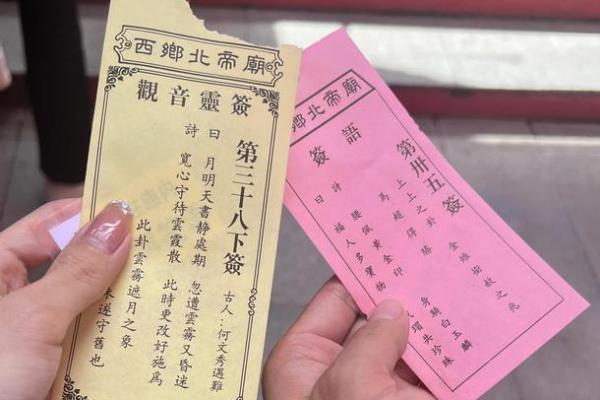 西鄉北帝廟
觀音靈簽
第三十八下簽
古人：何文秀遇難
詩曰
月明天書静處期 忽遭雲霧又昏迷
寬心守待雲霞散 此時更改好施為
此卦雲霧遮月之象
未遂守舊也
鄉北帝廟
簽語
第卅五簽
上上之卦 金 之兆
馬超得勝
詩曰
腰佩黃金印 身騎白玉麟
福人多寶物 瑁共珍珠